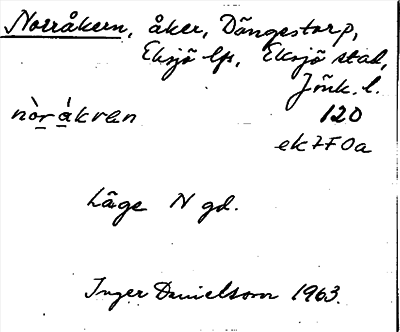 Norråkern, åker, Dängestorp,
Eksjö lfs, Eksjö stad,
Jönk. l.
nòrákren 120
ek7F0a
Läge N gd.
Inger Danielsson 1963.